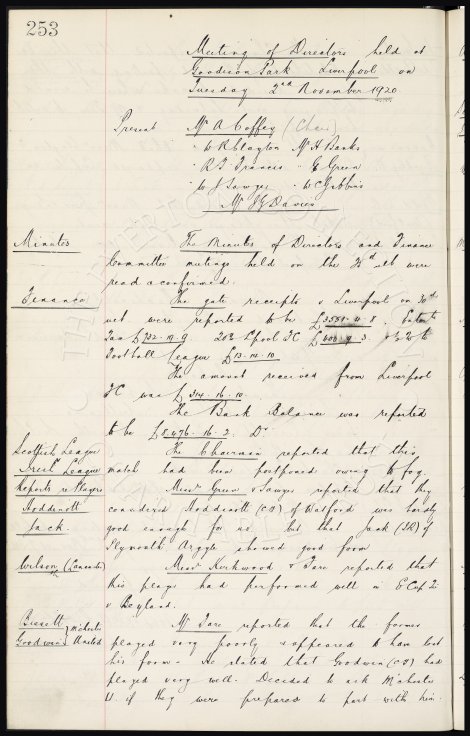 253
Meeting of Directors held at
Goodison Park Liverpool on
Tuesday 2nd November 1920
Present Mr A Coffey (Chair)
" W R Clayton Mr H Banks
" R T Francis " E Green
" W J Sawyer " W C Gibbins
Mr J G Davies
Minutes The Minutes of Directors and Finance
Committee meetings held on the ult were
read & confirmed.
Finance The gate receipts v Liverpool on
ult were reported to be £3561. 4. 8. Entertn
Tax £732. 19. 9 20% L'pool FC £ 9. 3. & % to
Football League £13. 14. 10
The amount received from Liverpool
FC was £314. 16. 10
The Bank Balance was reported
to be £5,476. 16. 2. Dr
Scottish League The Chairman reported that this
Irish League match had been postponed owing to fog.
Reports re Players Messrs Green & Sawyer reported that they
Hoddinott considered Hoddinott (CF) of Watford was hardly
Jack good enough for us but that Jack (IR) of
Plymouth Argyle showed good form
Wilson (Lancaster) Messrs Kirkwood & Fare reported that
this player had performed well in E Cup Tie
v Leyland.
Bissett Mr Fare reported that the former
Goodwin } M'chester United played very poorly & appeared to have lost
his form. He stated that Goodwin (CF) had
played very well. Decided to ask M'chester
U. if they were prepared to part with him.